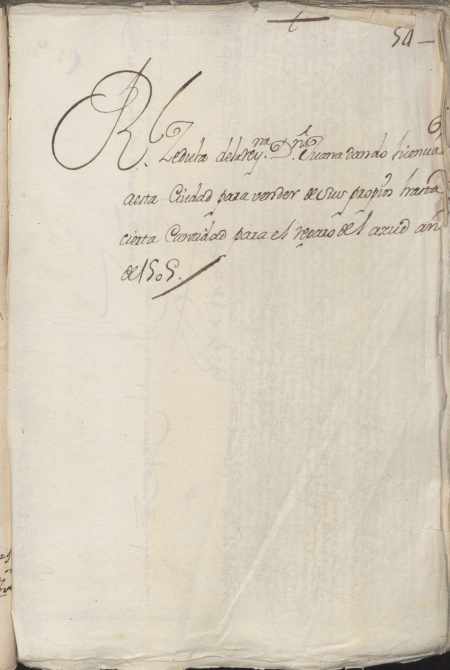 54
Rl. Zedula dela reyna. Dña. Juana dando licencia
aesta Ciudad para vender de sus propios hasta
cierta Cantidad para el reparo del azud año
de 1505.